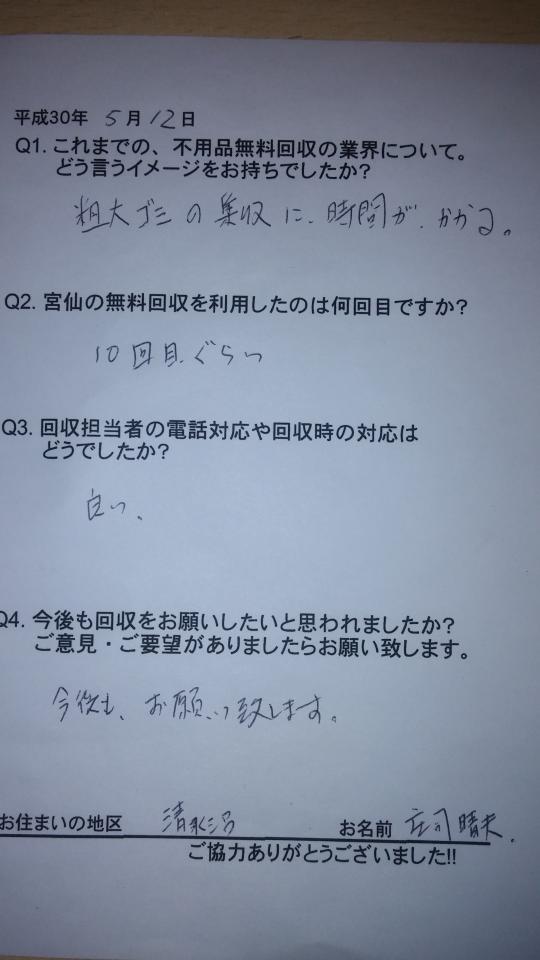 平成30年 5月12日
Q1. これまでの、不用品無料回収の業界について。
どう言うイメージをお持ちでしたか?
粗大ゴミの集収に、時間が、かかる。
Q2. 宮仙の無料回収を利用したのは何回目ですか?
10回目ぐらい
Q3. 回収担当者の電話対応や回収時の対応は
どうでしたか?
良い、
Q4. 今後も回収をお願いしたいと思われましたか?
ご意見・ご要望がありましたらお願い致します。
今後も、お願い致します。
お住まいの地区 清水沼 お名前 庄司晴夫.
ご協力ありがとうございました!!